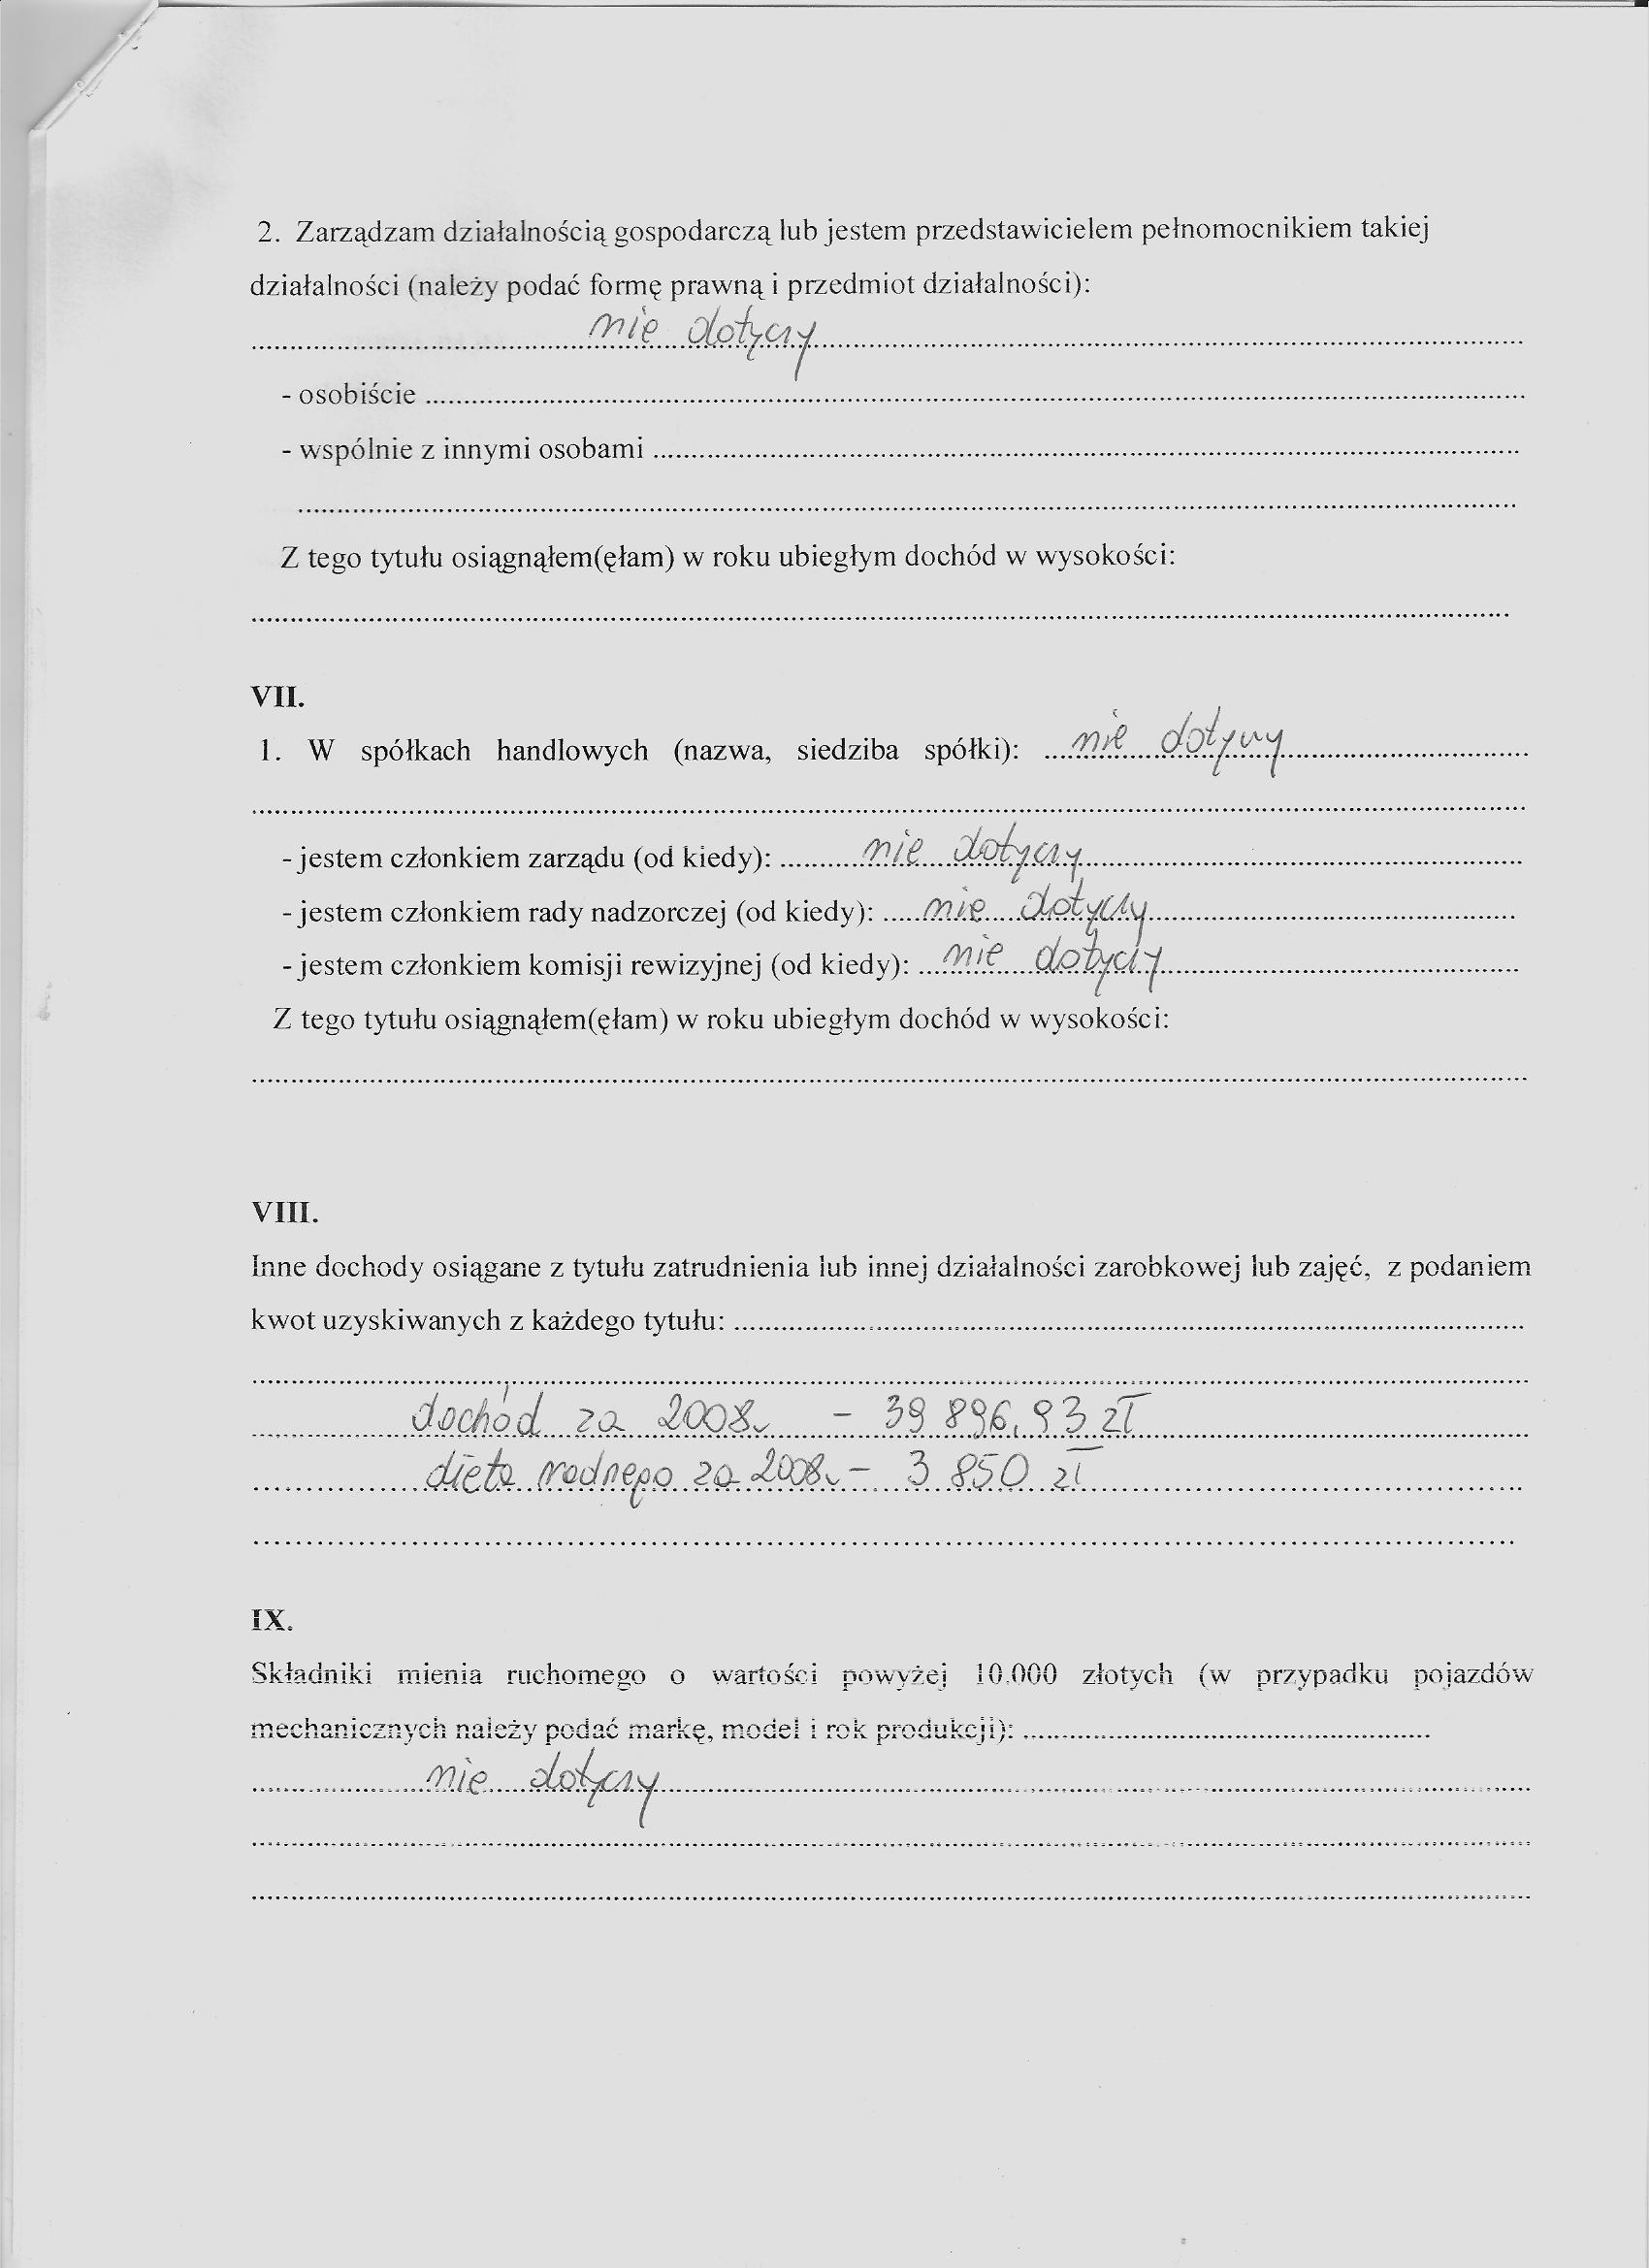 2. Zarządzam działalnością gospodarczą lub jestem przedstawicielem pełnomocnikiem takiej
działalności (należy podać formę prawną i przedmiot działalności):
nie dotyczy
- osobiście
- wspólnie z innymi osobami
Z tego tytułu osiągnąłem(ęłam) w roku ubiegłym dochód w wysokości:
VII.
1. W spółkach handlowych (nazwa, siedziba spółki): nie dotyczy
- jestem członkiem zarządu (od kiedy): nie dotyczy
- jestem członkiem rady nadzorczej (od kiedy): nie dotyczy
- jestem członkiem komisji rewizyjnej (od kiedy): nie dotyczy
Z tego tytułu osiągnąłem(ęłam) w roku ubiegłym dochód w wysokości:
VIII.
Inne dochody osiągane z tytułu zatrudnienia lub innej działalności zarobkowej lub zajęć, z podaniem
kwot uzyskiwanych z każdego tytułu:
dochód za 2008r - 39 896,93 zł
dieta radnego za 2008r - 3 850 zł
IX.
Składniki mienia ruchomego o wartości powyżej 10.000 złotych (w przypadku pojazdów
mechanicznych należy podać markę, model i rok produkcji):
nie dotyczy